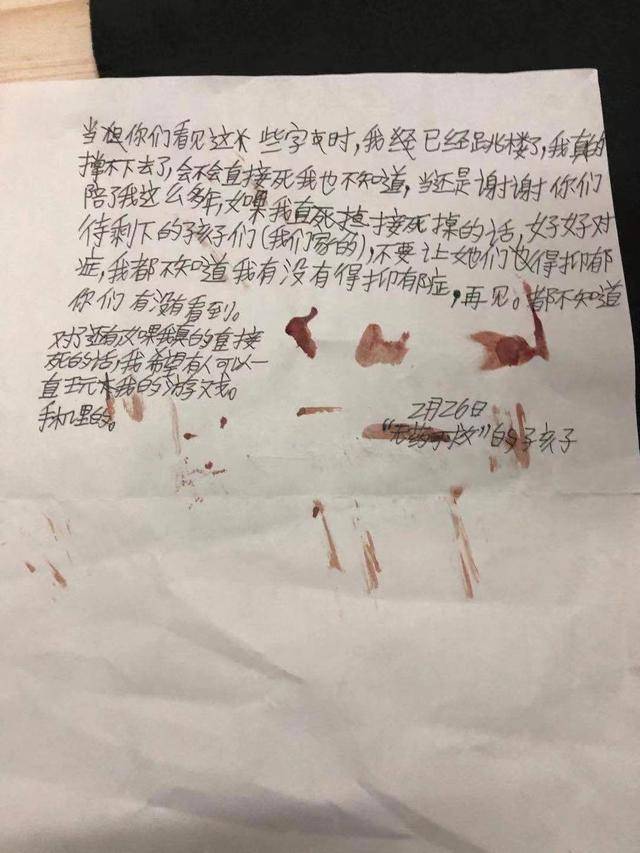 当你们看见这些字时,我已经跳楼了,我真的
撑不下去了,会不会直接死我也不知道,当还是谢谢你们
陪了我这么多年,如果我直接死掉的话,好好对
待剩下的孩子们(我们家的),不要让她们也得抑郁
症,我都不知道我有没有得抑郁症,再见。都不知道
你们有没有看到。
对了还有如果我真的直接
死的话,我希望有人可以一
直玩我的游戏。
手机里的。
2月26日
“无药可救”的孩子